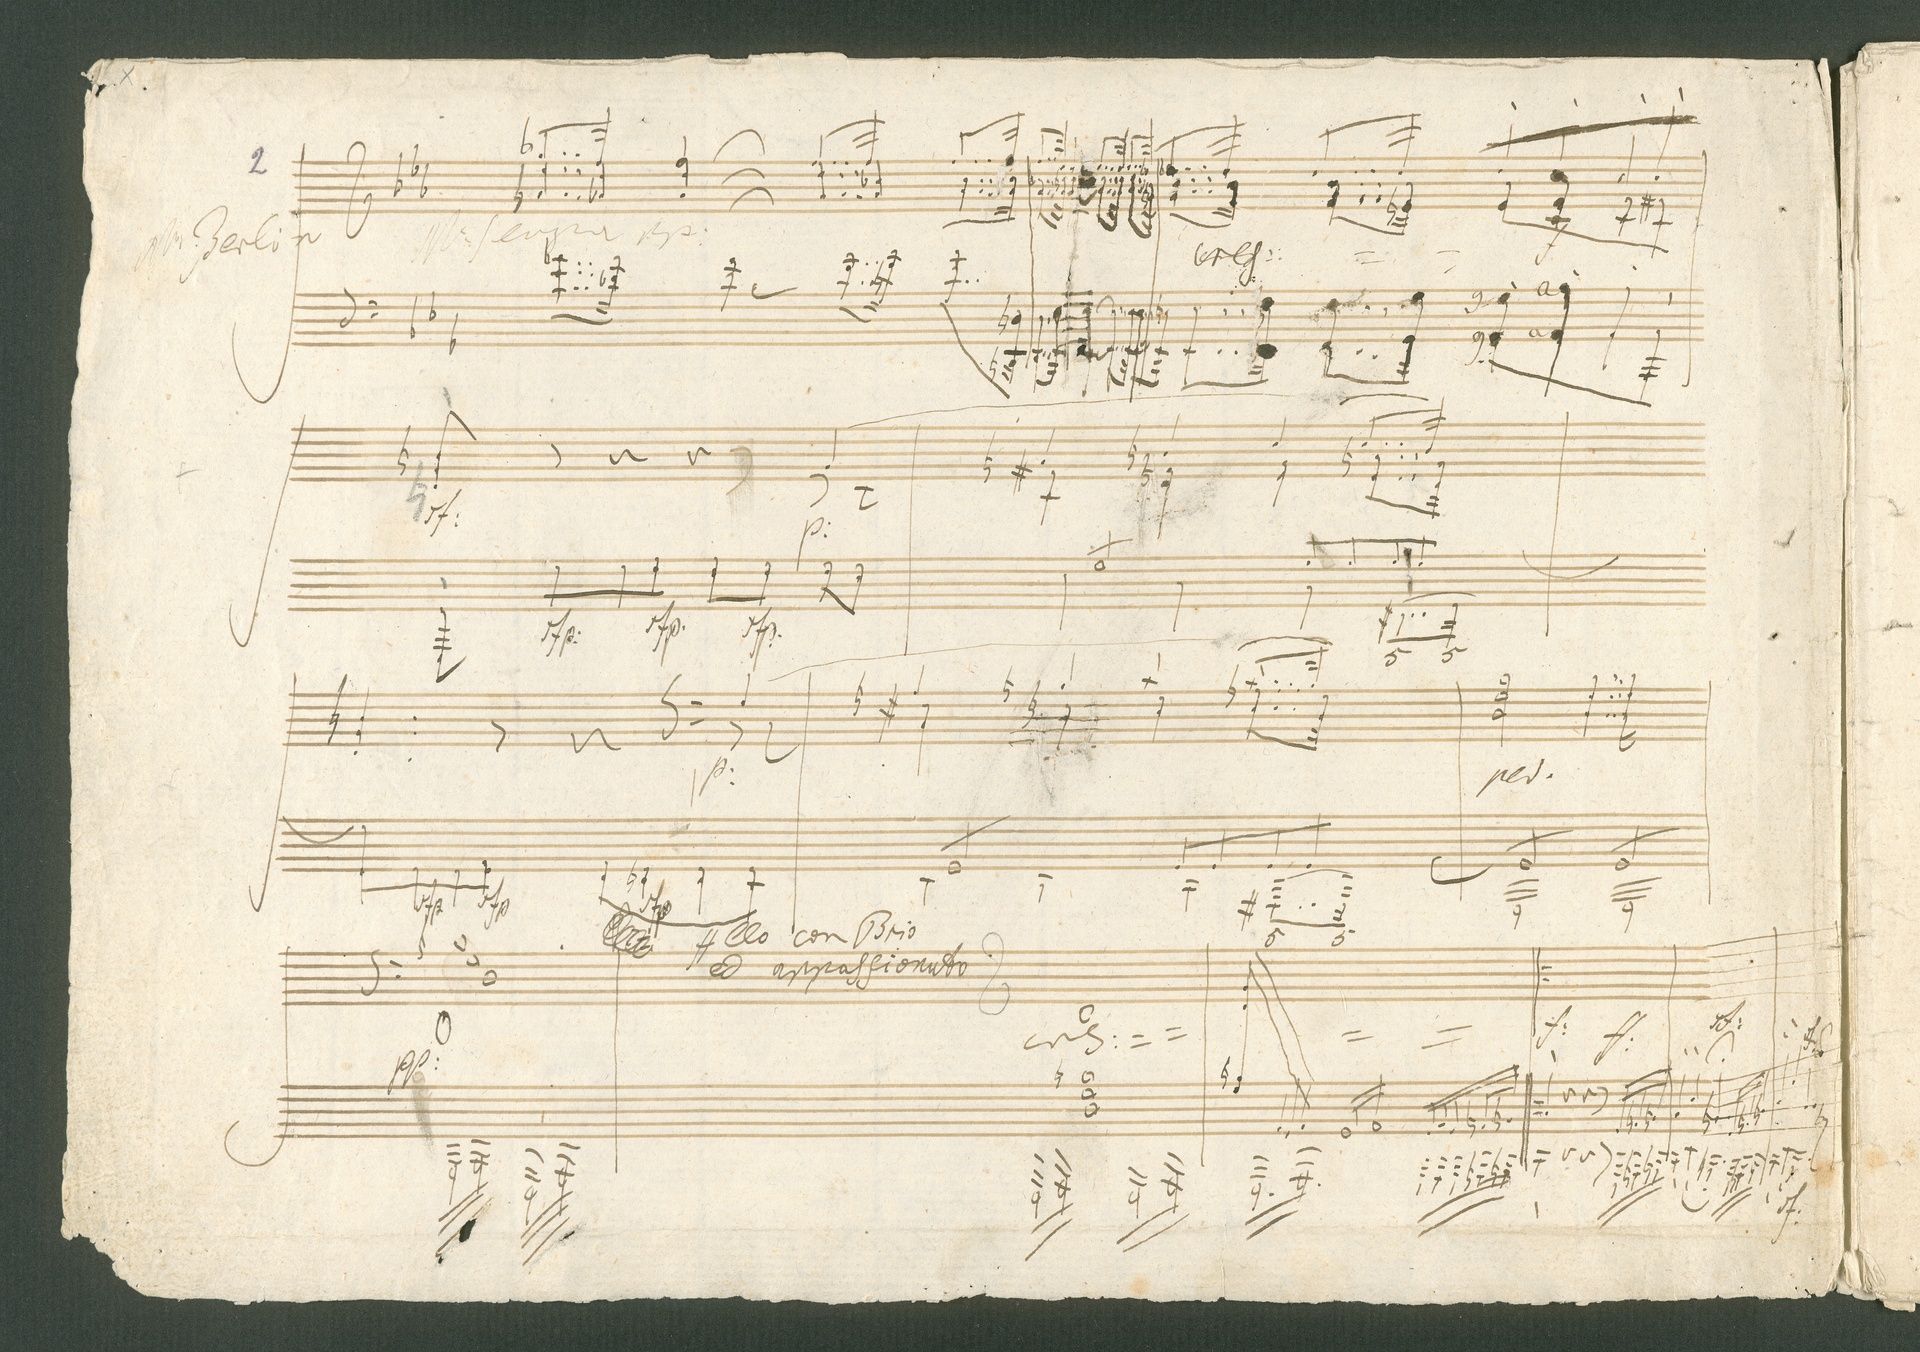 2
Berlin
sempre pp:
cresc: = =
g a
g a
sf:
p:
sfp: sfp: sfp:
5 5
p:
ped.
sfp sfp sfp
5 5
Allo con Brio
ed appassionato
pp:
cres: = = = =
f: ff: sf:
sf: